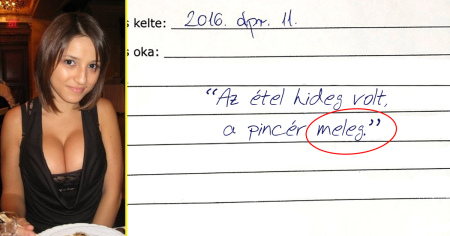 s kelte: 2016. ápr. 11.
s oka:
"Az étel hideg volt,
a pincér meleg."